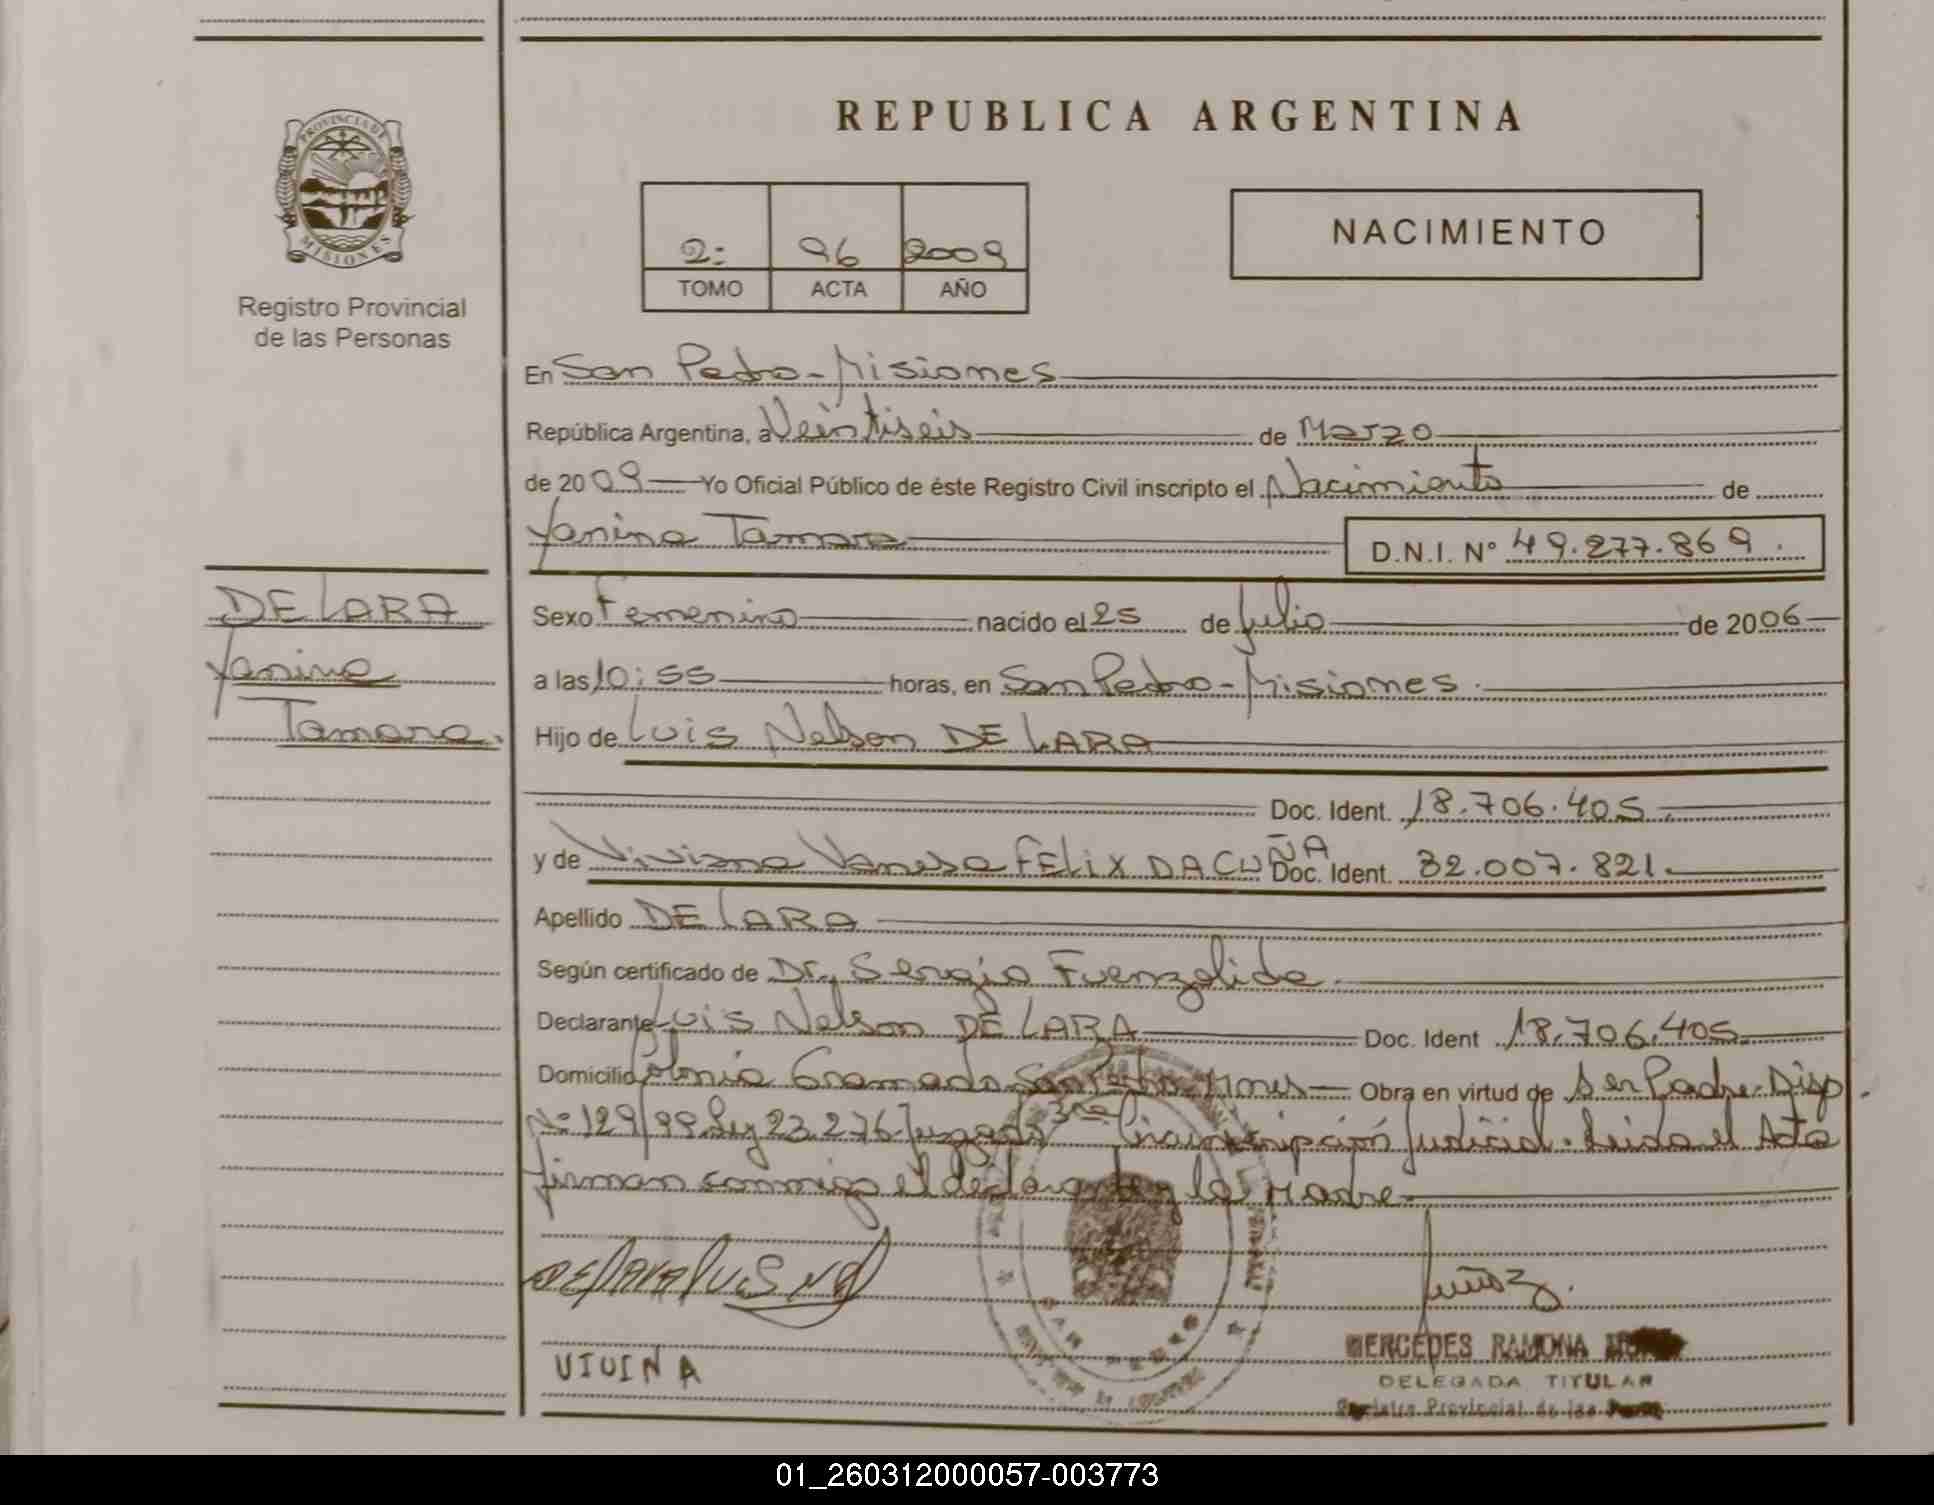 REPUBLICA ARGENTINA
PROVINCIA DE
MISIONES
Registro Provincial
de las Personas
2: 96 2009
TOMO ACTA AÑO
NACIMIENTO
En San Pedro - Misiones
República Argentina, a Veintiseis de Marzo
de 2009 Yo Oficial Público de éste Registro Civil inscripto el Nacimiento de
Yanina Tamara D.N.I. N° 49.277.869.
DE LARA
Yanina
Tamara.
Sexo Femenino nacido el 25 de Julio de 2006
a las 10:55 horas, en San Pedro - Misiones.
Hijo de Luis Nelson DE LARA
Doc. Ident. 18.706.405.
y de Viviana Vanesa FELIX DACUÑA Doc. Ident. 32.007.821.
Apellido DE LARA
Según certificado de Dr. Sergio Fuenzalida.
Declarante Luis Nelson DE LARA Doc. Ident 18.706.405.
Domicilio Colonia Gramado San Pedro Mnes Obra en virtud de Ser Padre. Disp.
N: 129/99 Ley 23.276 Juzgado 3ra Circunscripción Judicial. Leida el Acta
firman conmigo el declarante y la Madre.
VIVINA
MERCEDES RAMONA
DELEGADA TITULAR
Registro Provincial de las
01_260312000057-003773